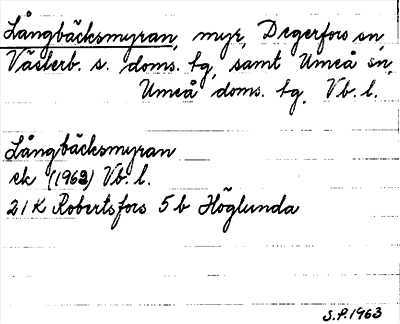 Långbäcksmyran, myr, Degerfors sn,
Västerb. s. doms. tg, samt Umeå sn,
Umeå doms. tg, Vb. l.
Långbäcksmyran
ek (1962) Vb. l.
21K Robertsfors 5b Höglunda
S.P. 1963